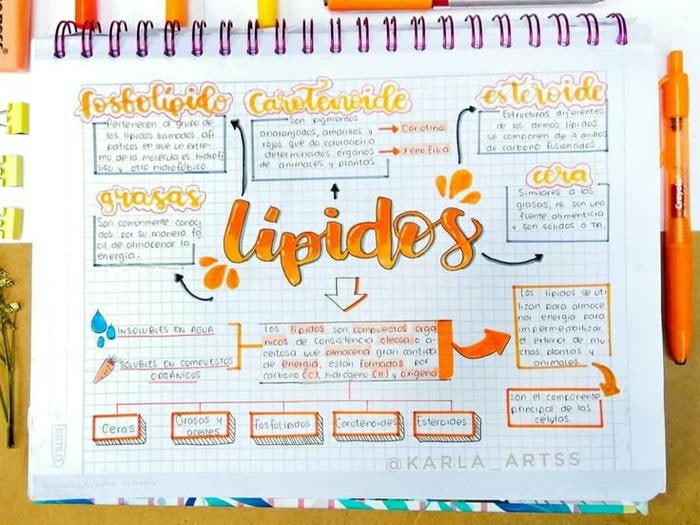 fosfolípido
Pertenecen al grupo de
los lípidos llamados afi
páticos en que un extre-
mo de la molécula es hidrofí
lico y otro hidrofóbico.
Carotenoide
Son pigmentos
anaranjados, amarillos y
rojos que da coloración a
determinados órganos
de animales y plantas.
Carotina
Xenofilia
esteroide
Estructuras diferentes
de los demás lípidos
se componen de 4 anillos
de carbono fusionados.
grasas
Son comunmente conoci
dos por su manera fá
cil de almacenar la
energía.
cera
Similares a las
grasas, no son una
fuente alimenticia
y son sólidos a TA.
lípidos
INSOLUBLES EN AGUA
SOLUBLES EN COMPUESTOS
ORGÁNICOS
Los lípidos son compuestos orgá
nicos de consistencia oleosa o a-
ceitosa que almacena gran cantida
de energía, están formados por
carbono (C), hidrógeno (H) y oxígeno
Los lípidos se uti
lizan para almace
nar energía para
impermeabilizar
el exterior de mu
chas plantas y
animales.
Son el componente
principal de las
células.
Ceras
Grasas y
aceites
Fosfolípidos
Carotenoides
Esteroides
@KARLA_ARTSS
ESTILO
Crayola